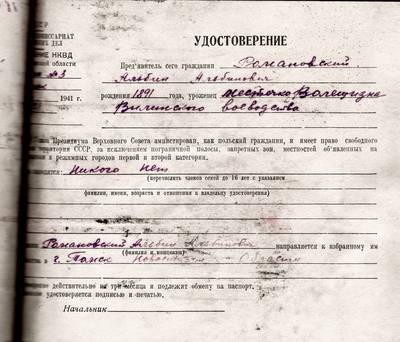 УДОСТОВЕРЕНИЕ
МИССАРИАТ
ИХ ДЕЛ
НКВД
Пред'явитель сего гражданин Романовский
ой области
№3
Альбин Альбинович
1941 г.
рождения 1891 года, уроженец местечко
Виленского воеводства
Президиума Верховного Совета амнистирован, как польский гражданин, и имеет право свободного
территории СССР, за исключением пограничной полосы, запретных зон, местностей об'явленных на
и режимных городов первой и второй категории.
Никого нет
(перечислить членов семей до 16 лет с указанием
фамилии, имени, возраста и отношения к владельцу удостоверения)
Романовский Альбин Альбинович направляется к избранному им
(фамилия и инициалы)
в г. Томск Области
действительно на три месяца и подлежит обмену на паспорт.
удостоверяется подписью и печатью.
Начальник